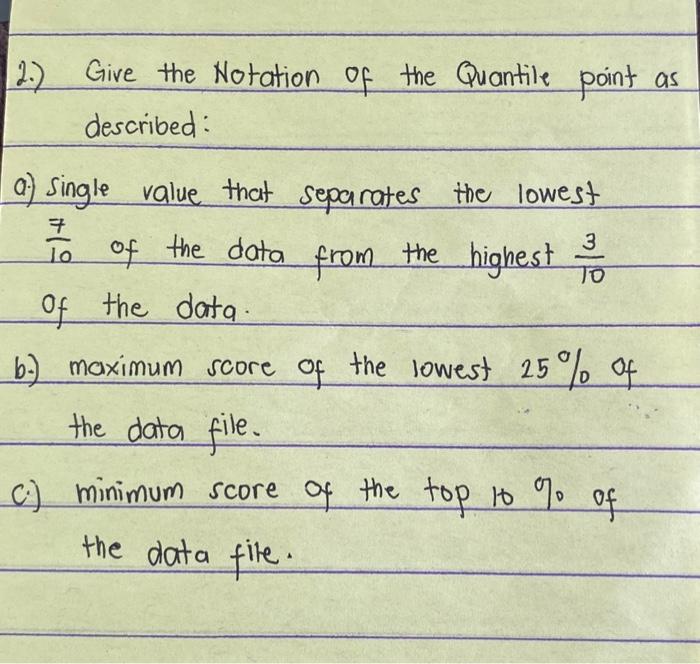 2.) Give the Notation of the Quantile point as
described:
a.) single value that separates the lowest
7/10 of the data from the highest 3/10
of the data.
b.) maximum score of the lowest 25% of
the data file.
c.) minimum score of the top 10 % of
the data file.